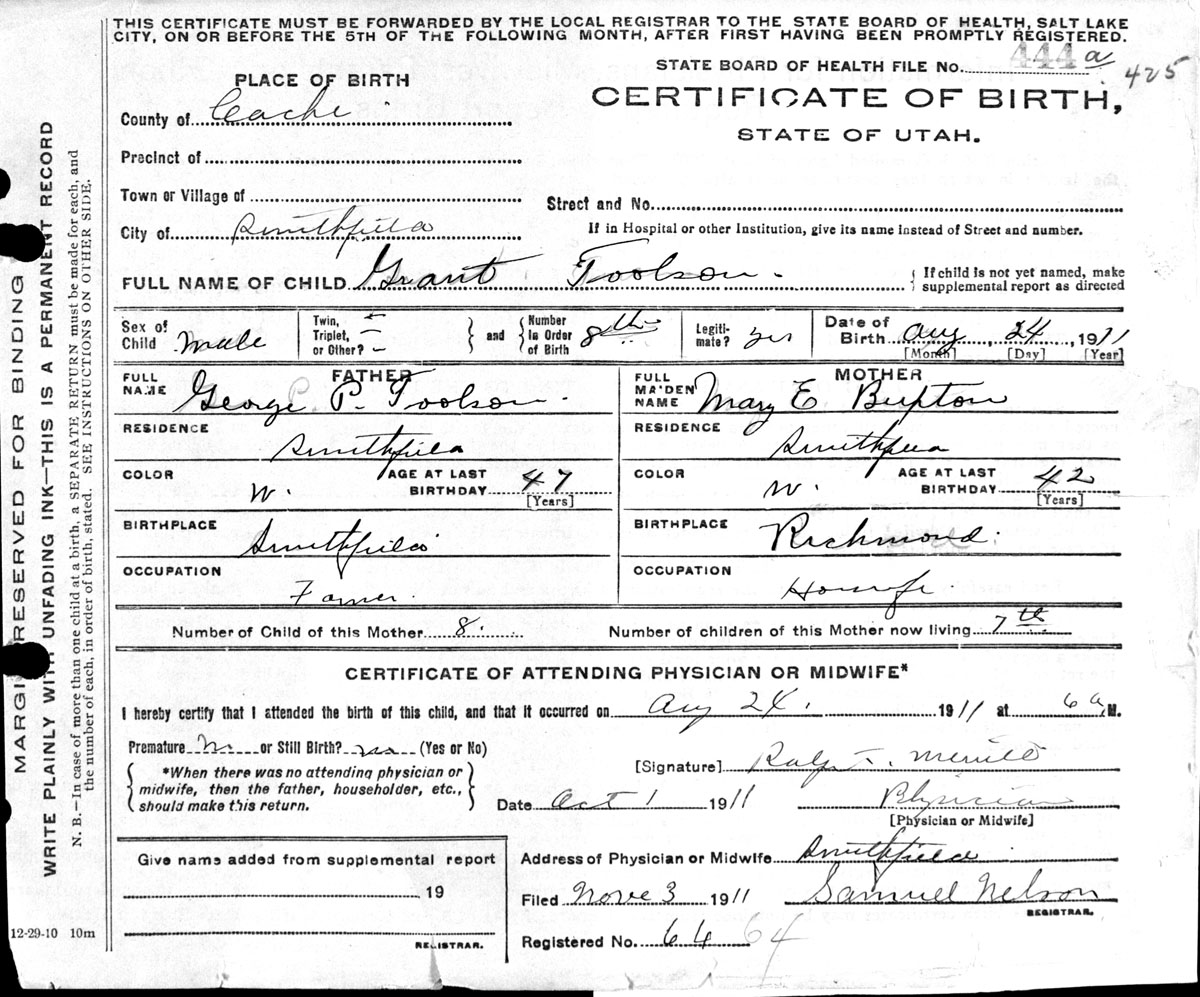 THIS CERTIFICATE MUST BE FORWARDED BY THE LOCAL REGISTRAR TO THE STATE BOARD OF HEALTH, SALT LAKE
CITY, ON OR BEFORE THE 5TH OF THE FOLLOWING MONTH, AFTER FIRST HAVING BEEN PROMPTLY REGISTERED.
STATE BOARD OF HEALTH FILE No. 444 a 425
PLACE OF BIRTH
CERTIFICATE OF BIRTH,
STATE OF UTAH.
County of Cache
Precinct of
Town or Village of
Street and No.
City of Smithfield
If in Hospital or other Institution, give its name instead of Street and number.
FULL NAME OF CHILD Grant Toolson. { If child is not yet named, make
supplemental report as directed
Sex of Child Male
Twin, Triplet, or Other?
and { Number in Order of Birth 8th
Legiti-mate? yes
Date of Birth Aug, 24, 1911
[Month] [Day] [Year]
FATHER
FULL NAME George P. Toolson.
RESIDENCE Smithfield
COLOR W. AGE AT LAST BIRTHDAY 47 [Years]
BIRTHPLACE Smithfield
OCCUPATION Farmer.
MOTHER
FULL MAIDEN NAME Mary E Buxton
RESIDENCE Smithfield
COLOR W. AGE AT LAST BIRTHDAY 42 [Years]
BIRTHPLACE Richmond.
OCCUPATION Housewife
Number of Child of this Mother 8. Number of children of this Mother now living 7th
CERTIFICATE OF ATTENDING PHYSICIAN OR MIDWIFE*
I hereby certify that I attended the birth of this child, and that it occurred on Aug 24. 1911 at 6 a M.
Premature No or Still Birth? no (Yes or No)
{ *When there was no attending physician or
midwife, then the father, householder, etc.,
should make this return. }
[Signature] Merrill
Date Oct 1 1911 Physician
[Physician or Midwife]
Give name added from supplemental report
19
REGISTRAR.
Address of Physician or Midwife Smithfield
Filed Nove 3 1911 Samuel Nelson
REGISTRAR.
Registered No. 64 64
12-29-10 10m
MARGIN RESERVED FOR BINDING
WRITE PLAINLY WITH UNFADING INK—THIS IS A PERMANENT RECORD
N. B.—In case of more than one child at a birth, a SEPARATE RETURN must be made for each, and
the number of each, in order of birth, stated. SEE INSTRUCTIONS ON OTHER SIDE.